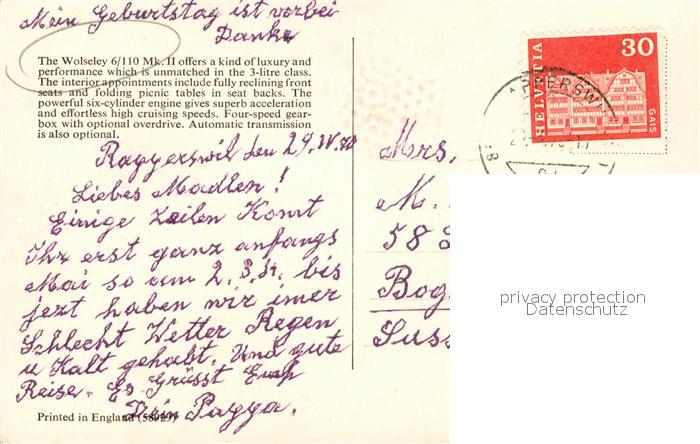 Mein Geburtstag ist vorbei
Danke
The Wolseley 6/110 Mk. II offers a kind of luxury and
performance which is unmatched in the 3-litre class.
The interior appointments include fully reclining front
seats and folding picnic tables in seat backs. The
powerful six-cylinder engine gives superb acceleration
and effortless high cruising speeds. Four-speed gear-
box with optional overdrive. Automatic transmission
is also optional.
Rapperswil den 29. IV. 70
Liebes Madlen!
Einige Zeilen Komt
Ihr erst ganz anfangs
Mai so am 2. 3. bis
jezt haben wir imer
Schlecht Wetter Regen
u Kalt gehabt. Und gute
Reise. Es Grüsst Euch
Dein Pappa.
Printed in England (58929)
HELVETIA
30
GAIS
Mrs.
M.
58
Bog
Suss
privacy protection
Datenschutz